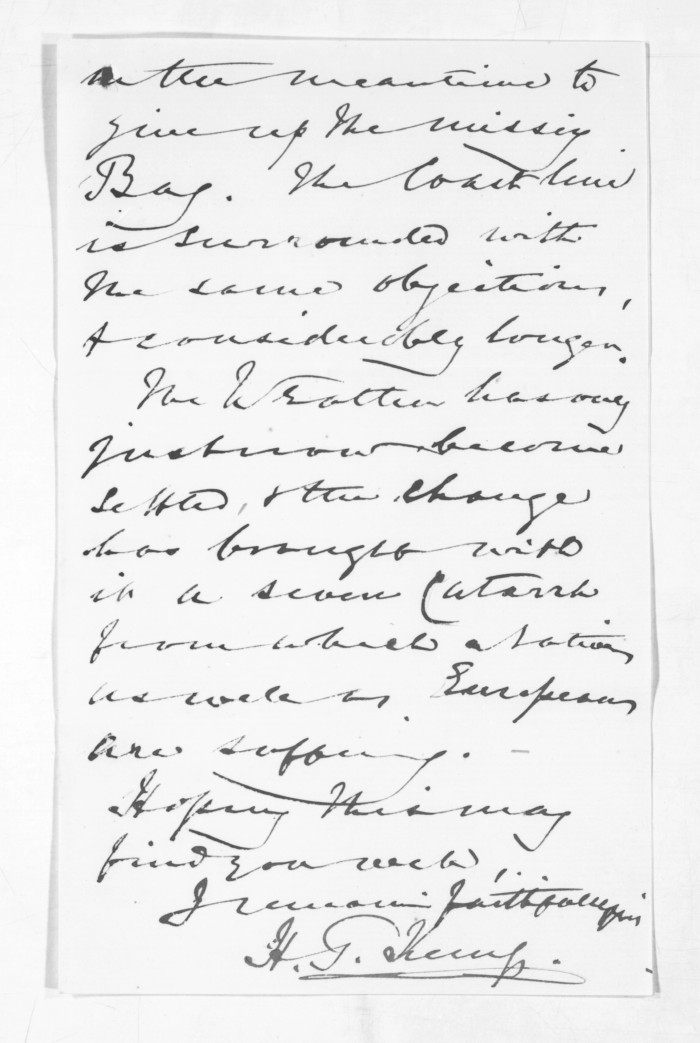 in the meantime to
give up the missig
Bag. The Coast line
is surrounded with
the same objections,
& considerably longer.
The Weather has only
just now become
settled, & the change
has brought with
it a severe Catarrh
from which Natives
as well as Europeans
are suffering.
Hoping this may
find you well,
I remain faithfully yrs
H. T. Kemp.